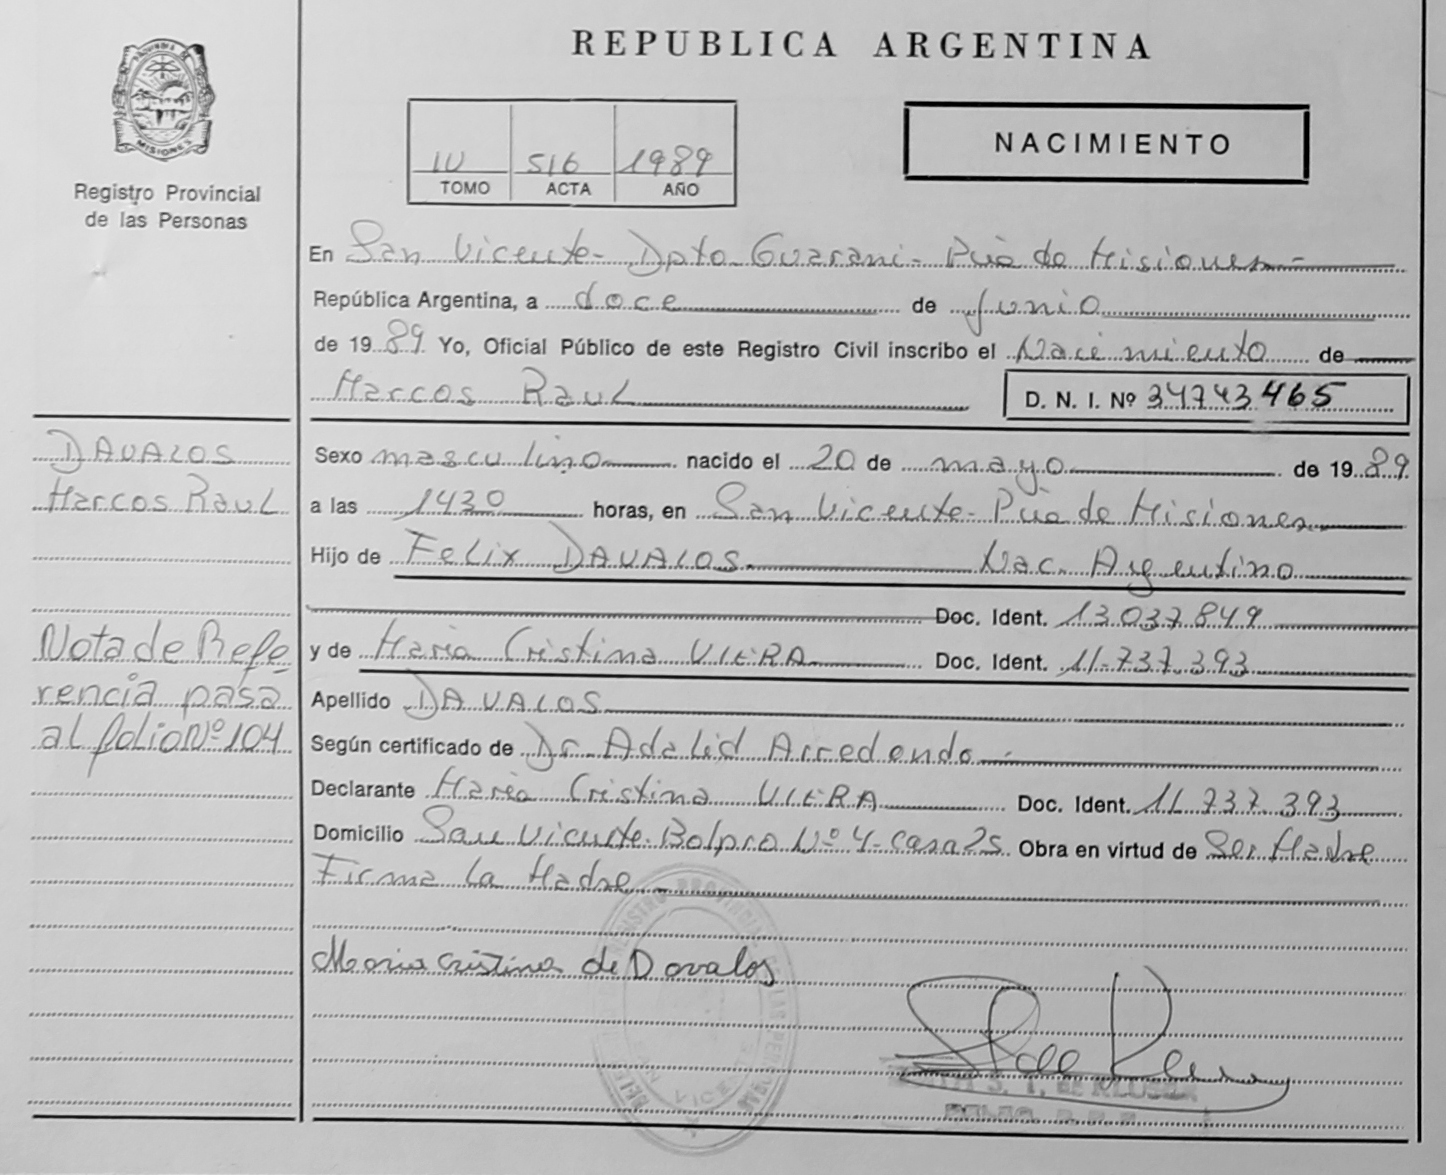 REPUBLICA ARGENTINA
MISIONES
Registro Provincial
de las Personas
IV 516 1989
TOMO ACTA AÑO
NACIMIENTO
En San Vicente - Dpto Guarani - Pcia de Misiones
República Argentina, a doce de Junio
de 1989 Yo, Oficial Público de este Registro Civil inscribo el Nacimiento de
Marcos Raul
D. N. I. Nº 34743465
DAVALOS
Marcos Raul
Nota de Refe
rencia pasa
al folio Nº 104
Sexo masculino nacido el 20 de mayo de 1989
a las 1430 horas, en San Vicente - Pcia de Misiones
Hijo de Felix DAVALOS Nac. Argentino
Doc. Ident. 13.037.849
y de Maria Cristina VIERA Doc. Ident. 11.737.393
Apellido DAVALOS
Según certificado de Dr Adalid Arredondo
Declarante Maria Cristina VIERA Doc. Ident. 11.737.393
Domicilio San Vicente - Bolpro Nº 4 - Casa 25 Obra en virtud de Ser Madre
Firma la Madre
Maria Cristina de Davalos
REGISTRO PROVINCIAL DE LAS PERSONAS
SAN VICENTE